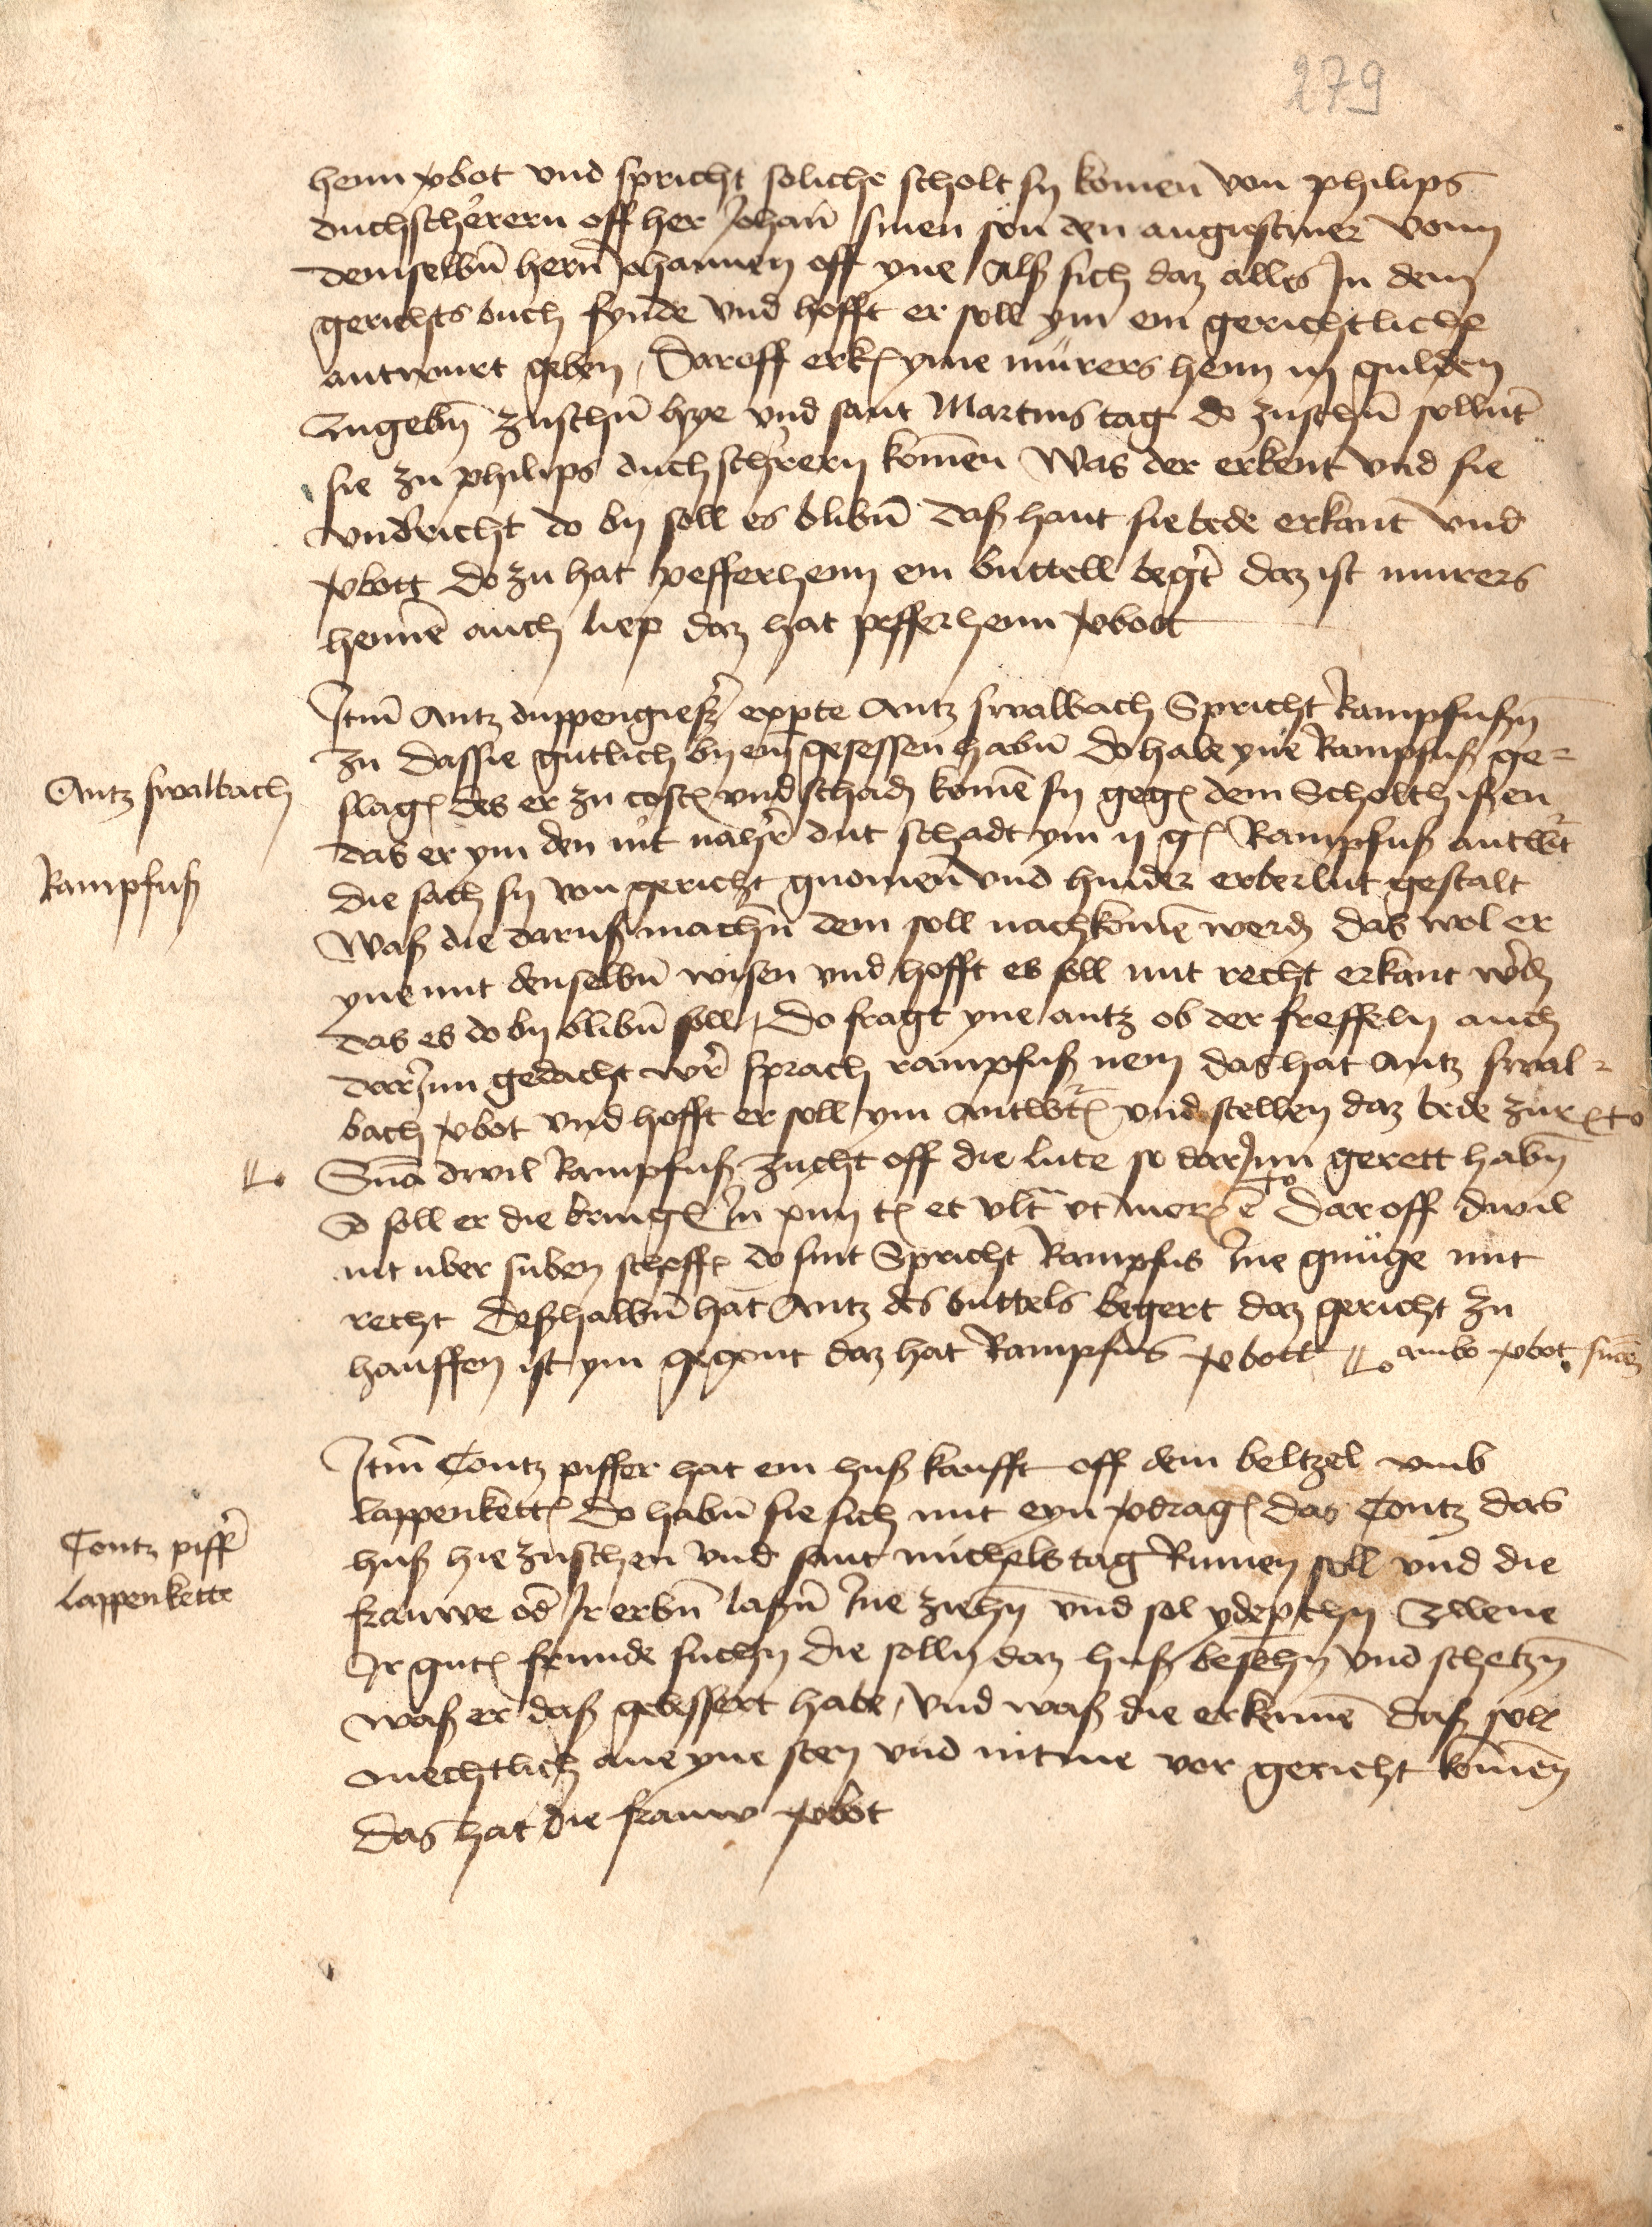 279
henn v͛bot vnd spricht soliche scholt sy komen von philips
duchscherern off her Johan̄ sinen son den augustiner vonn
demselbn̄ hern̄ Johannen off yne Alß sich daz alles In dem
gerichts buch fynde vnd hofft er soll ym ein gerichtliche
antwurt geben, Daroff erk yme mürers henn iij gulden
zugebn̄ zuschn̄ hye vnd sant Martins tag do zuschn̄ sollnt
sie zu philips duchscherern komen Was der erkent vnd sie
vndericht do by soll es blibn̄ daß hant sie bede erkant vnd
v͛bott Do zu hat pefferhenn ein buttell beg͛t daz ist murers
hennē auch liep daz hat pefferhenn v͛bott
Itm̄ Antz duppengieß͛ exp̄te Antz swalbach Spricht Rampfußn̄
zu das sie gutlich by ein gesessen habn̄ do habe yne Rampfuß ge-
slag des er zu cost vnd schad komē sy geg dem Scholthißen
das er ym den nit nah͛t dut schadt ym ij g Rampfuß antw͛t
die sach sy von gericht gnomen vnd hinder erber lut gestalt
Waß die daruß machn̄ dem soll nachkomē werd das wol er
yne mit denselbn̄ wisen vnd hofft es soll mit recht erkant w͛d
das es do by blibn̄ soll, Do fragt yne antz ob der freffeln auch
darJnn gedacht w͛ sprach rampfuß nein das hat Antz swal-
bach v͛bot vnd hofft er soll ym Antw͛t vnd stellen daz bede zur
Sn̄a dwil Rampfuß zucht off die lute so darJnn gerett habn̄
So soll er die bring In xiiij t et vlt̄ vt mor ē Daroff dwil
nit uber suben scheff do sint Spricht Rampfus Ine gnüge mit
recht deßhalbn̄ hat Antz des buttels begert daz gericht zu
hauffen ist ym gegont daz hat Rampfus v͛bott ambo v͛bot
Itm̄ Contz piffer hat ein huß kaufft off dem beltzel vmb
lappenkett Do habn̄ sie sich mit eyn v͛drag das Contz das
huß hie zuschen vnd sant michels tag Rumen soll vnd die
frauwe od͛ Jr erbn̄ laßn̄ Ine ziehn̄ vnd sol yde p̄thy Zwene
Jr gut frunde suchn̄ die solln̄ daz huß besehn̄ vnd schetzn̄
waß er daß gebessert habe, vnd waß die erkennē daß soll
mechtlich ane yne sten vnd nit me vor gericht komen
Das hat die frauw v͛bot
Antz swalbach
Rampfuß
Contz piff͛
lappenkette